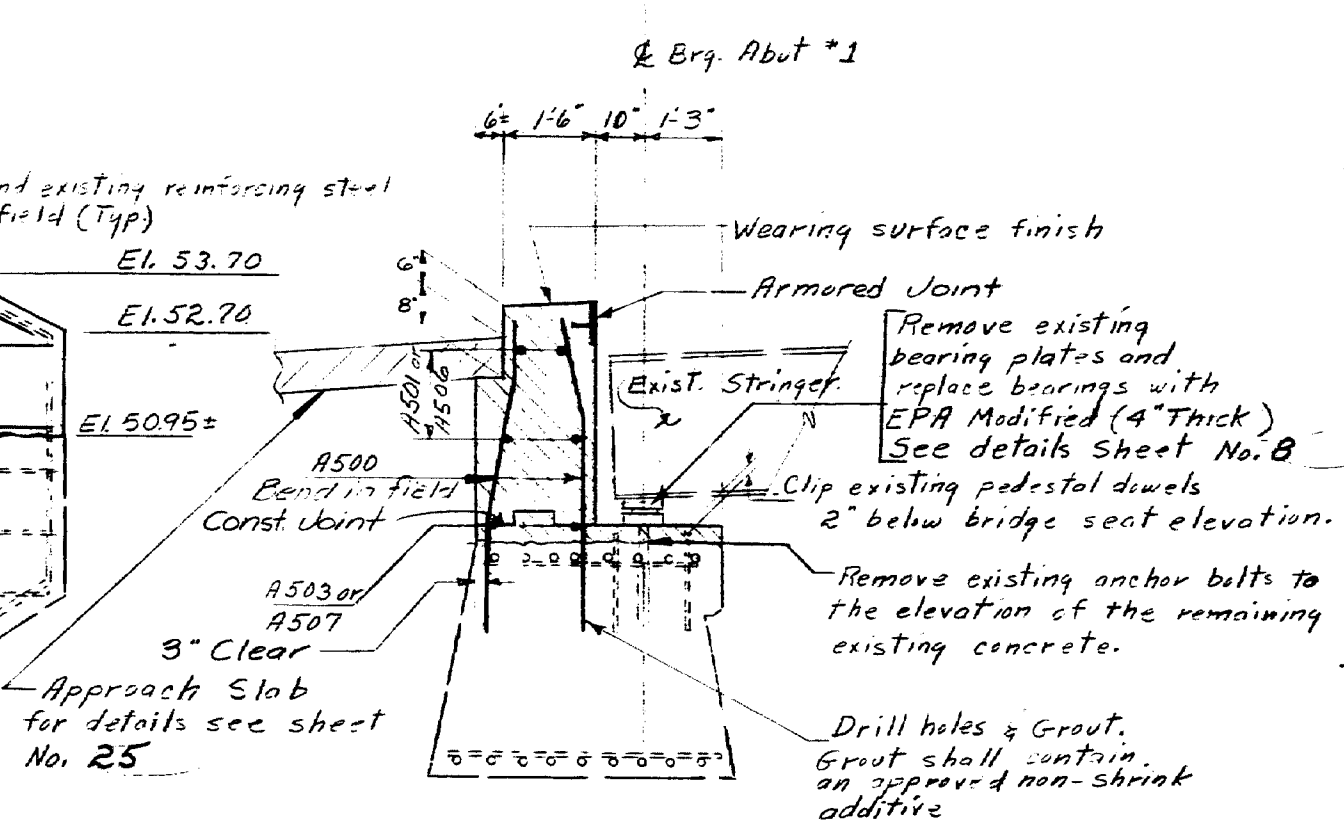 ℄ Brg. Abut #1
6"± 1'-6" 10" 1'-3"
nd existing reinforcing steel
field (Typ.)
El. 53.70
El. 52.70
El. 50.95±
6"
8"
Wearing surface finish
Armored Joint
Remove existing
bearing plates and
replace bearings with
EPA Modified (4" Thick)
See details Sheet No. 8
Exist. Stringer
A501 or
A506
A500
Bend in field
Const. Joint
Clip existing pedestal dowels
2" below bridge seat elevation.
A503 or
A507
3" Clear
Remove existing anchor bolts to
the elevation of the remaining
existing concrete.
Approach Slab
for details see sheet
No. 25
Drill holes & Grout.
Grout shall contain
an approved non-shrink
additive